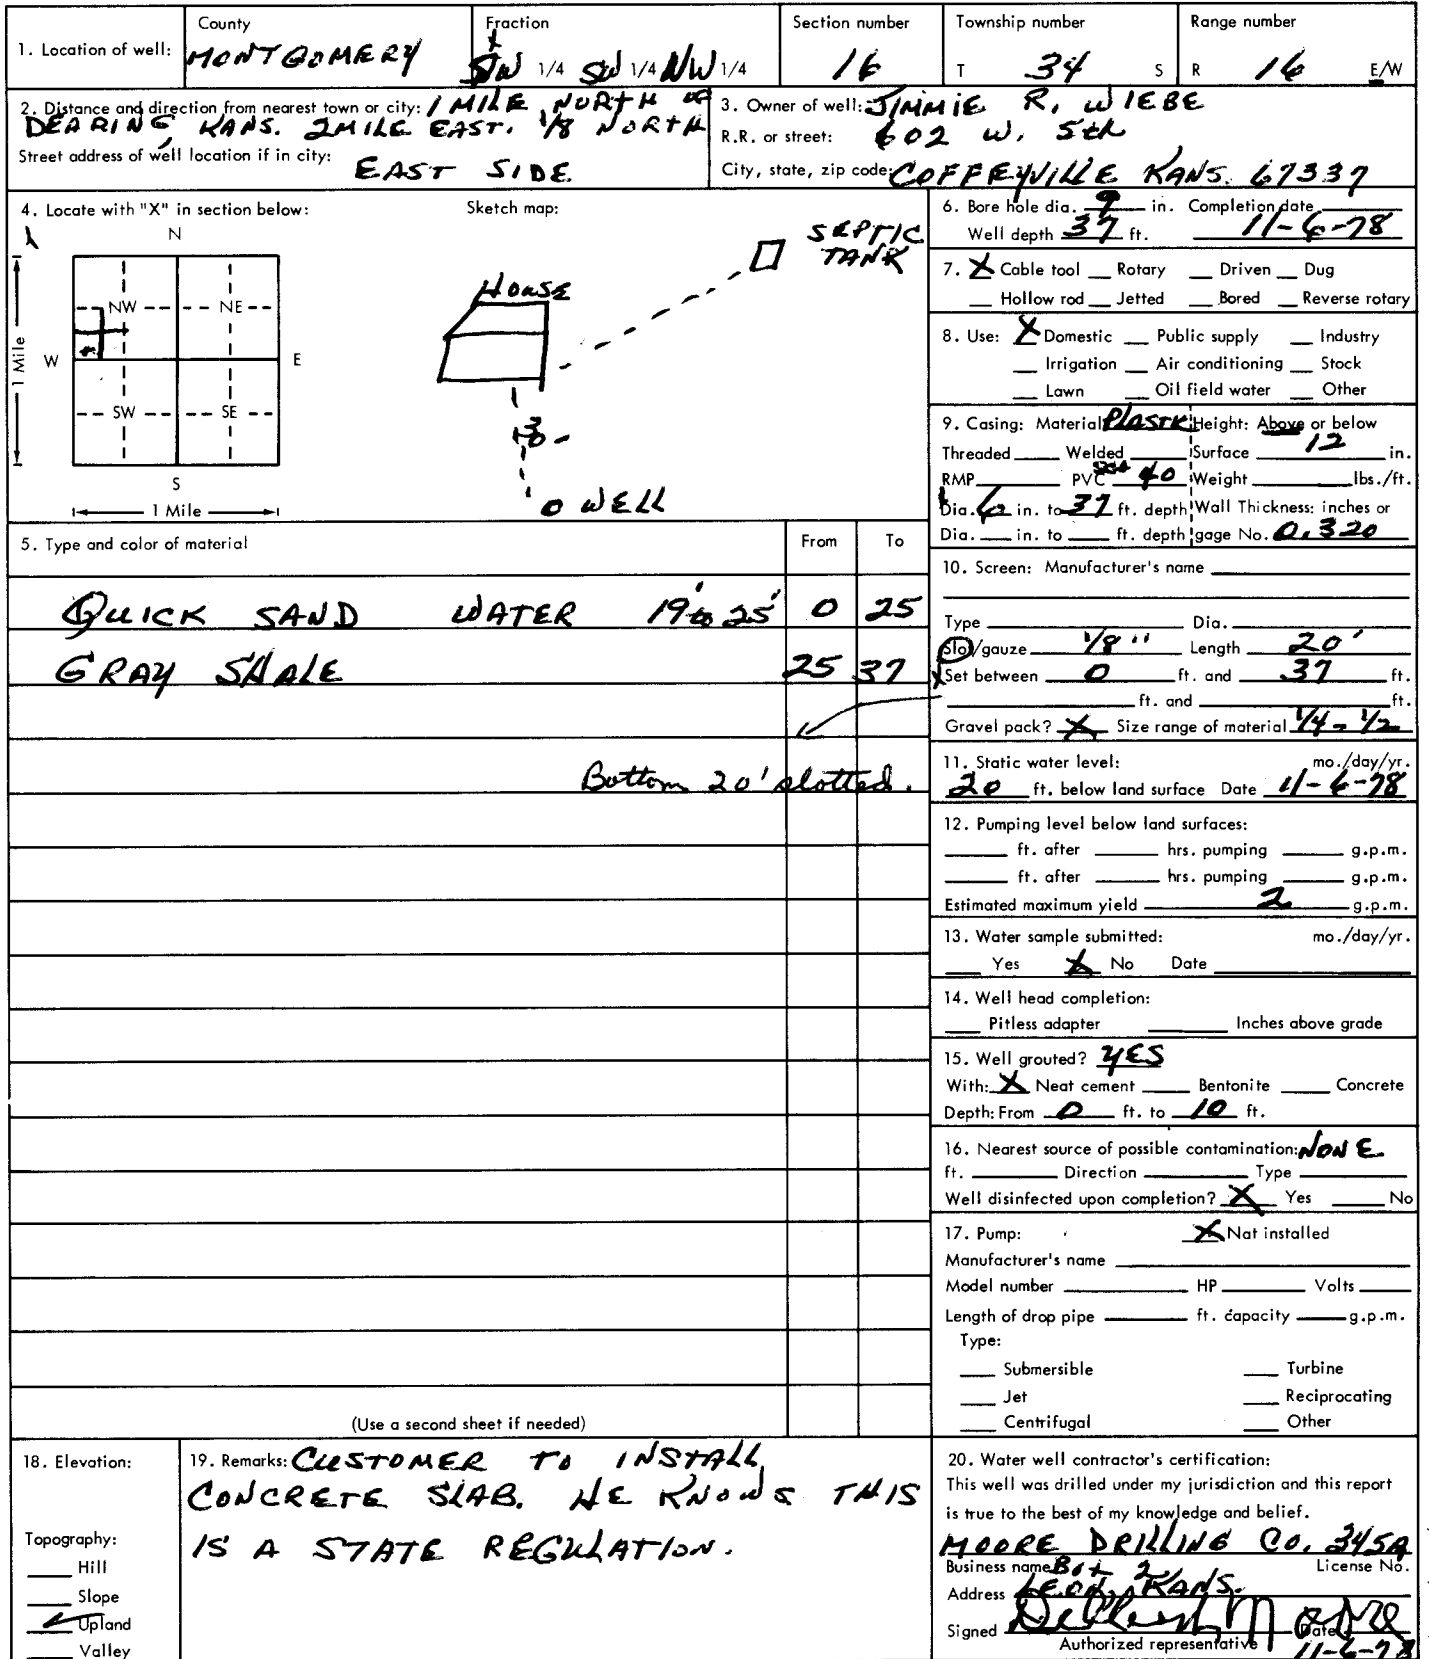 County Fraction Section number Township number Range number
1. Location of well: MONTGOMERY SW 1/4 SW 1/4 NW 1/4 16 T 34 S R 16 E/W
2. Distance and direction from nearest town or city: 1 MILE NORTH OF
DEARING, KANS. 2 MILE EAST. 1/8 NORTH
Street address of well location if in city:
EAST SIDE
3. Owner of well: JIMMIE R. WIEBE
R.R. or street: 602 W. 5th
City, state, zip code: COFFEYVILLE KANS. 67337
4. Locate with "X" in section below:
N
NW NE
W E
SW SE
S
1 Mile
1 Mile
Sketch map:
SEPTIC
TANK
HOUSE
30
WELL
5. Type and color of material From To
QUICK SAND WATER 19' to 25' 0 25
GRAY SHALE 25 37
Bottom 20' slotted.
(Use a second sheet if needed)
6. Bore hole dia. 9 in. Completion date
Well depth 37 ft. 11-6-78
7. X Cable tool Rotary Driven Dug
Hollow rod Jetted Bored Reverse rotary
8. Use: X Domestic Public supply Industry
Irrigation Air conditioning Stock
Lawn Oil field water Other
9. Casing: Material PLASTIC Height: Above or below
Threaded Welded Surface 12 in.
RMP PVC Sch 40 Weight lbs./ft.
Dia. 6 in. to 37 ft. depth Wall Thickness: inches or
Dia. in. to ft. depth gage No. 0.320
10. Screen: Manufacturer's name
Type Dia.
Slot/gauze 1/8" Length 20'
Set between 0 ft. and 37 ft.
ft. and ft.
Gravel pack? X Size range of material 1/4 - 1/2
11. Static water level: mo./day/yr.
20 ft. below land surface Date 11-6-78
12. Pumping level below land surfaces:
ft. after hrs. pumping g.p.m.
ft. after hrs. pumping g.p.m.
Estimated maximum yield 2 g.p.m.
13. Water sample submitted: mo./day/yr.
Yes X No Date
14. Well head completion:
Pitless adapter Inches above grade
15. Well grouted? YES
With: X Neat cement Bentonite Concrete
Depth: From 0 ft. to 10 ft.
16. Nearest source of possible contamination: NONE
ft. Direction Type
Well disinfected upon completion? X Yes No
17. Pump: X Not installed
Manufacturer's name
Model number HP Volts
Length of drop pipe ft. capacity g.p.m.
Type:
Submersible Turbine
Jet Reciprocating
Centrifugal Other
18. Elevation:
Topography:
Hill
Slope
Upland
Valley
19. Remarks: CUSTOMER TO INSTALL
CONCRETE SLAB. HE KNOWS THIS
IS A STATE REGULATION.
20. Water well contractor's certification:
This well was drilled under my jurisdiction and this report
is true to the best of my knowledge and belief.
MOORE DRILLING CO. 345A
Business name Box 2 License No.
Address LEON, KANS.
Signed Moore Date
Authorized representative 11-6-78